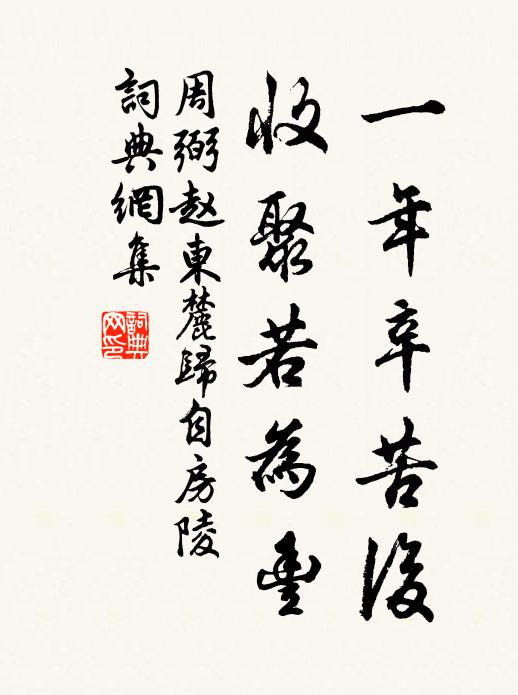 一年辛苦後
收聚若為豐
周弼赵東麓歸自房陵
詞典網集
詞典網印